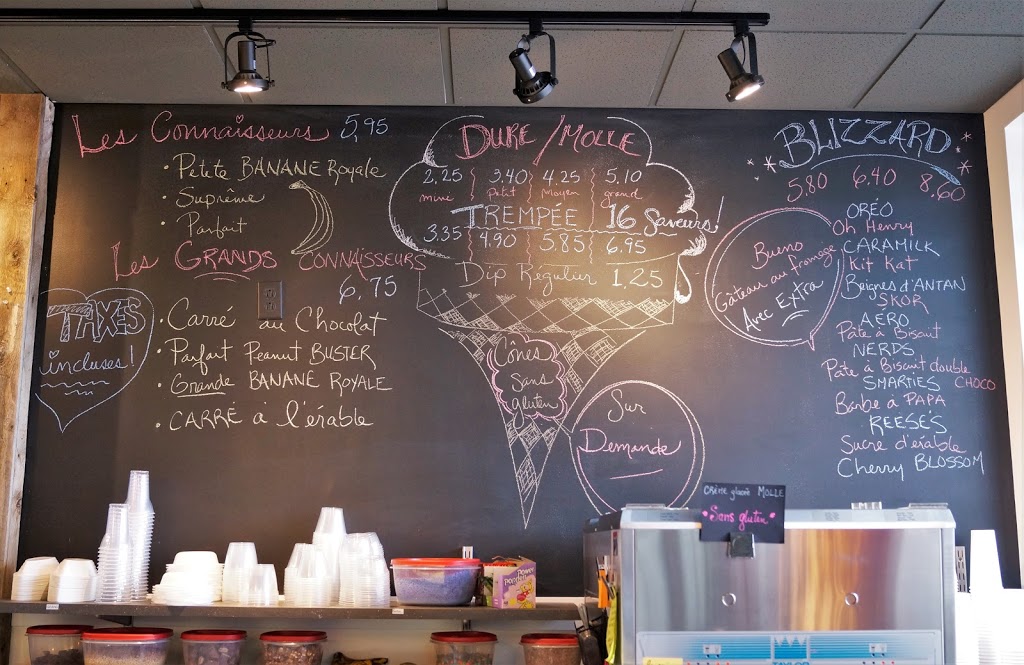 Les Connaisseurs 5,95
• Petite BANANE Royale
• Suprême
• Parfait
Les GRANDS CONNAISSEURS
6,75
• Carré au Chocolat
• Parfait Peanut BUSTER
• Grande BANANE ROYALE
• CARRÉ à l'érable
TAXES
incluses!
DURE/MOLLE
2,25 3,40 4,25 5,10
mini petit moyen grand
TREMPÉE 16 Saveurs!
3.35 4,90 5,85 6,95
Dip Régulier 1,25
Cônes
Sans
gluten
Sur
Demande
BLIZZARD
5,80 6,40 8,60
Bueno
Gâteau au fromage
Avec Extra
ORÉO
Oh Henry
CARAMILK
Kit Kat
Beignes d'ANTAN
SKOR
AÉRO
Pâte à Biscuit
NERDS
Pâte à Biscuit double
CHOCO
SMARTIES
Barbe à PAPA
REESE'S
Sucre d'érable
Cherry BLOSSOM
Crème glacée MOLLE
Sans gluten
TAYLOR